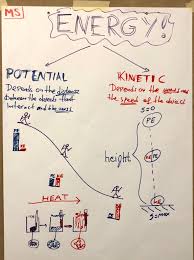 MS
ENERGY!
POTENTIAL
Depends on the distance
between the objects that
interact and the mass
KINETIC
Depends on the mass and
the speed of the object
S=0
PE
height
KE PE
KE
S=max
PE KE
PE KE
HEAT